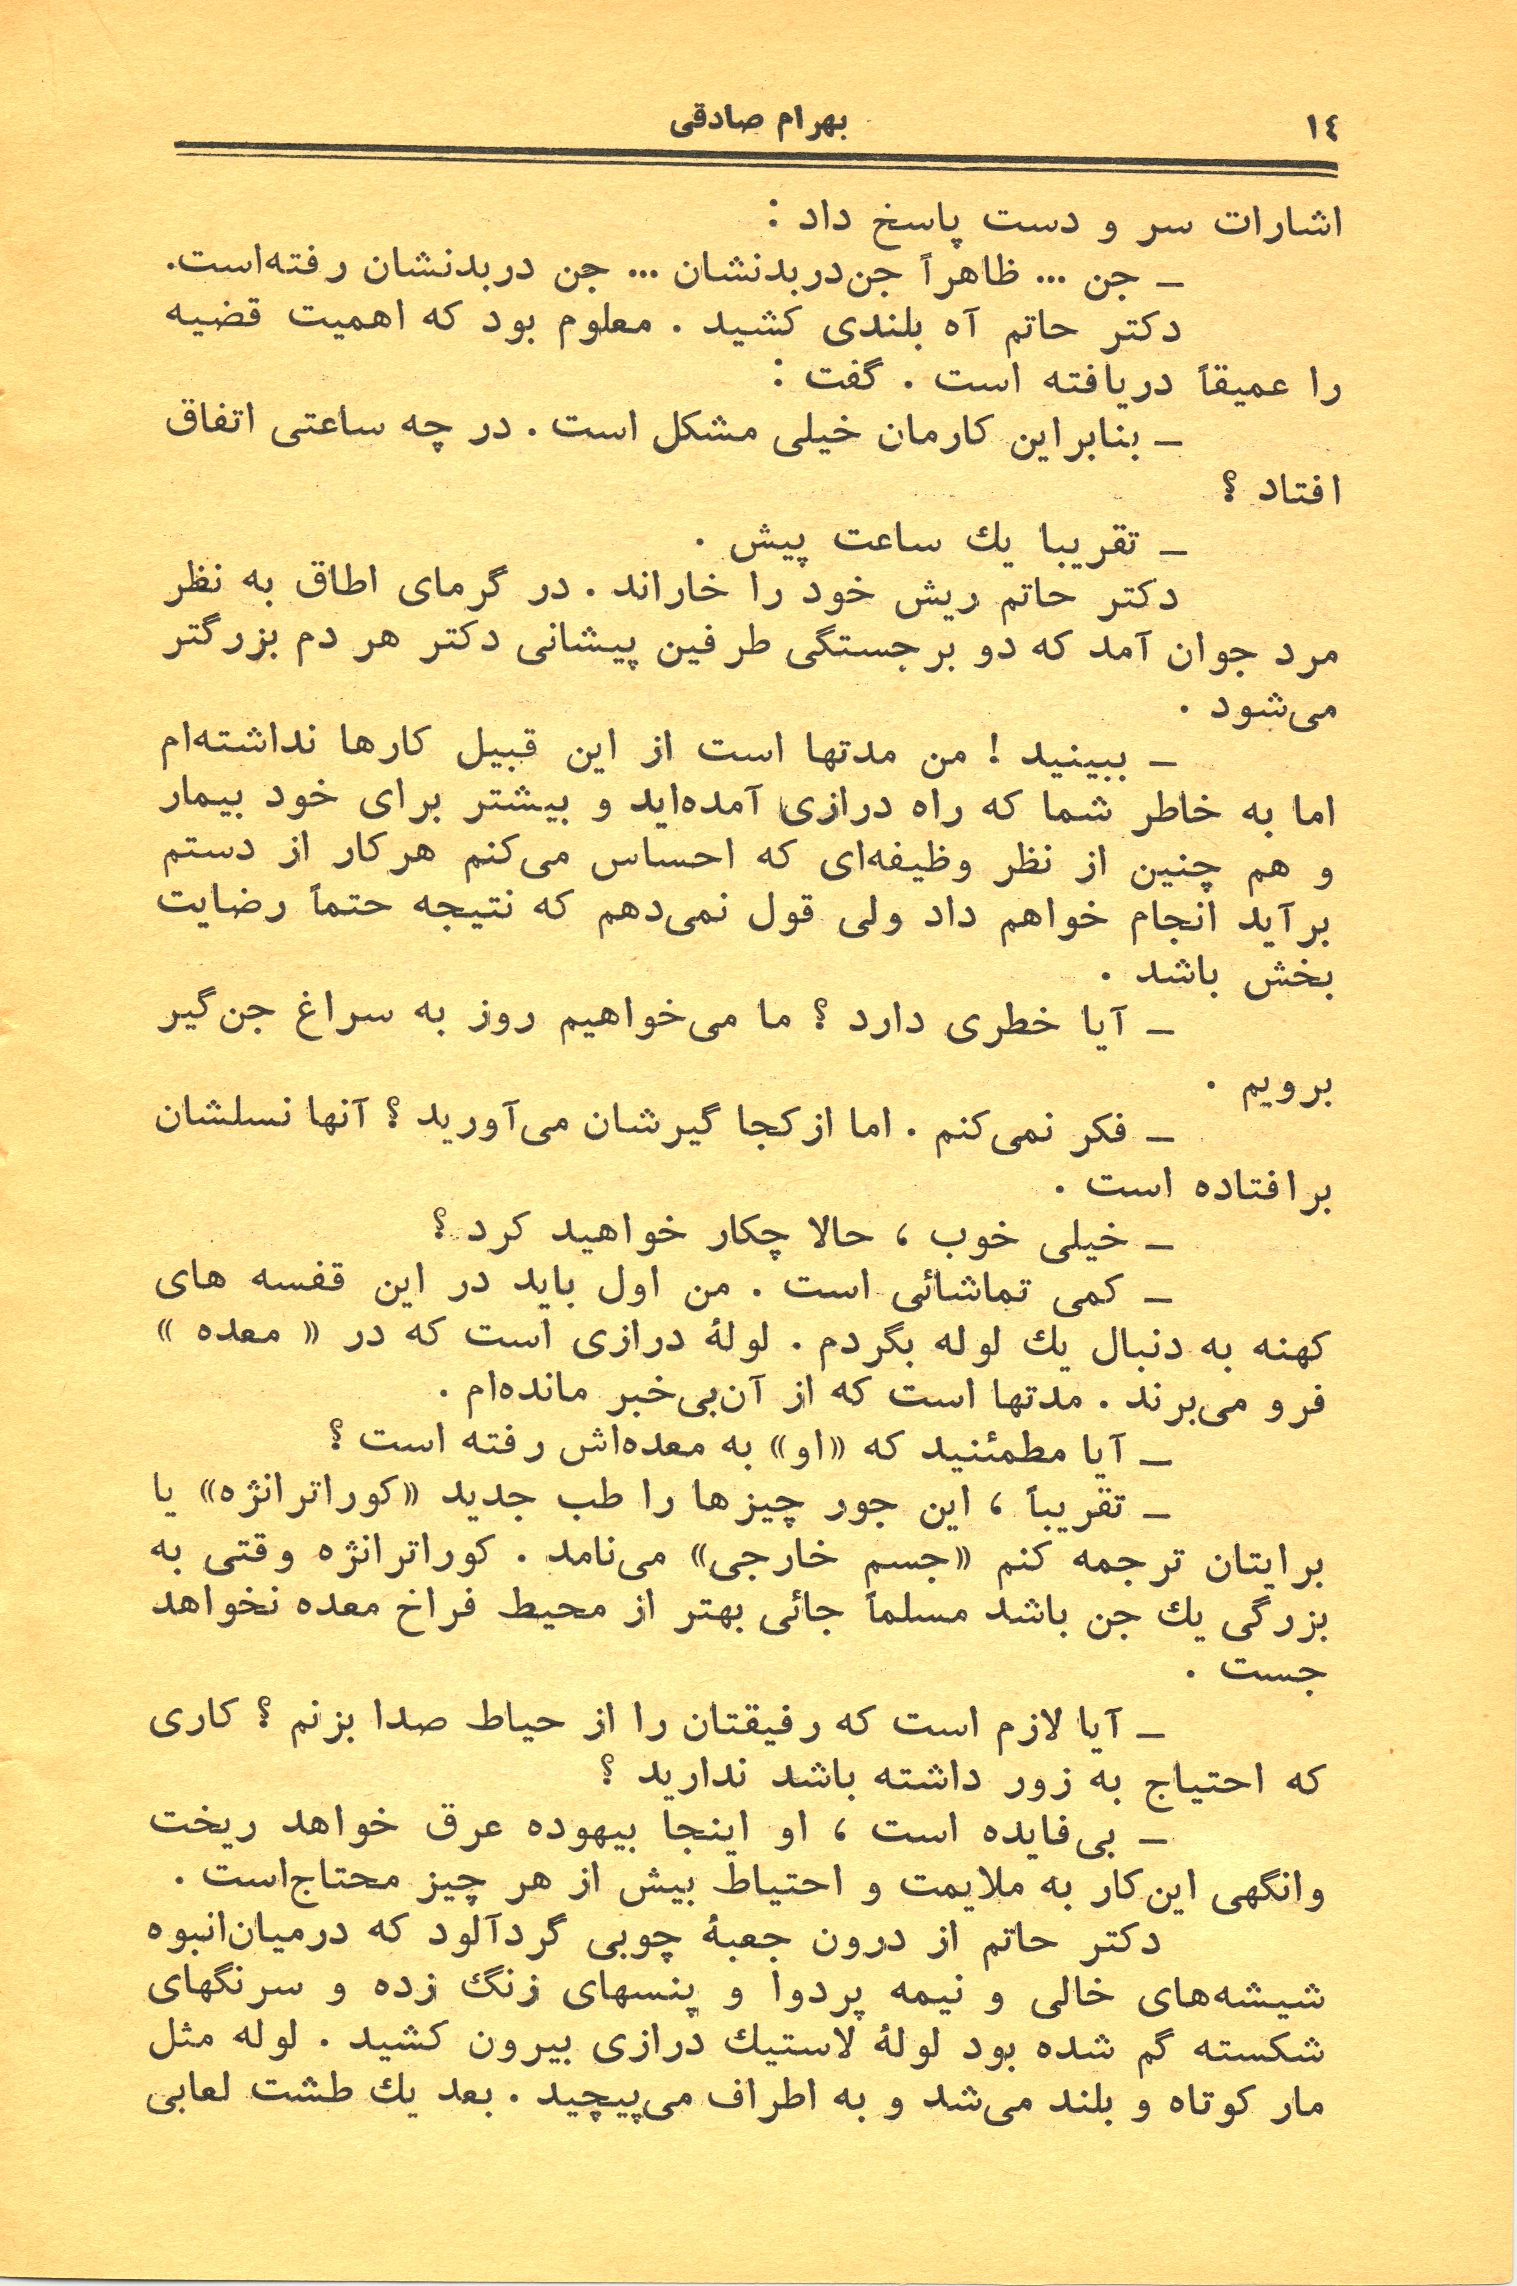 ١٤
بهرام صادقی
اشارات سر و دست پاسخ داد :
ـ جن ... ظاهراً جن‌در بدنشان ... جن در بدنشان رفته‌است.
دکتر حاتم آه بلندی کشید . معلوم بود که اهمیت قضیه
را عمیقاً دریافته است . گفت :
ـ بنابراین کارمان خیلی مشکل است . در چه ساعتی اتفاق
افتاد ؟
ـ تقریبا یك ساعت پیش .
دکتر حاتم ریش خود را خاراند . در گرمای اطاق به نظر
مرد جوان آمد که دو برجستگی طرفین پیشانی دکتر هر دم بزرگتر
می‌شود .
ـ ببینید ! من مدتها است از این قبیل کارها نداشته‌ام
اما به خاطر شما که راه درازی آمده‌اید و بیشتر برای خود بیمار
و هم چنین از نظر وظیفه‌ای که احساس می‌کنم هرکار از دستم
برآید انجام خواهم داد ولی قول نمی‌دهم که نتیجه حتماً رضایت
بخش باشد .
ـ آیا خطری دارد ؟ ما می‌خواهیم روز به سراغ جن‌گیر
برویم .
ـ فکر نمی‌کنم . اما ازکجا گیرشان می‌آورید ؟ آنها نسلشان
برافتاده است .
ـ خیلی خوب ، حالا چکار خواهید کرد ؟
ـ کمی تماشائی است . من اول باید در این قفسه های
کهنه به دنبال یك لوله بگردم . لولهٔ درازی است که در « معده »
فرو می‌برند . مدتها است که از آن‌بی‌خبر مانده‌ام .
ـ آیا مطمئنید که «او» به معده‌اش رفته است ؟
ـ تقریباً ، این جور چیزها را طب جدید «کوراترانژه» یا
برایتان ترجمه کنم «جسم خارجی» می‌نامد . کوراترانژه وقتی به
بزرگی یك جن باشد مسلماً جائی بهتر از محیط فراخ معده نخواهد
جست .
ـ آیا لازم است که رفیقتان را از حیاط صدا بزنم ؟ کاری
که احتیاج به زور داشته باشد ندارید ؟
ـ بی‌فایده است ، او اینجا بیهوده عرق خواهد ریخت
وانگهی این‌کار به ملایمت و احتیاط بیش از هر چیز محتاج‌است .
دکتر حاتم از درون جعبهٔ چوبی گردآلود که درمیان‌انبوه
شیشه‌های خالی و نیمه پردوا و پنسهای زنگ زده و سرنگهای
شکسته گم شده بود لولهٔ لاستیك درازی بیرون کشید . لوله مثل
مار کوتاه و بلند می‌شد و به اطراف می‌پیچید . بعد یك طشت لعابی